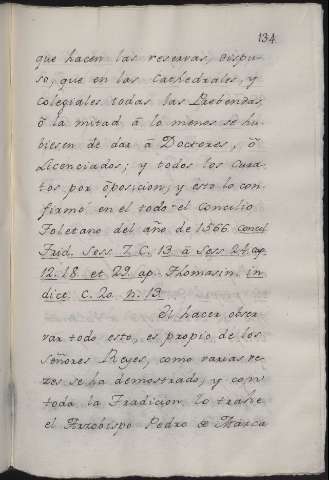 134
que hacen las reservas, dispu-
so, que en las Cathedrales, y
Colegiales todas las Prebendas,
ô la mitad â lo menos se hu-
biesen de dar â Doctores, ô
Licenciados; y todos los Cura-
tos por oposicion, y esto lo con-
firmó en el todo el Concilio
Toletano del año de 1566. Concil
Trid. Sess 7. C. 13. â Sess 24. ap.
12. 18. et 29. ap. Thomasin. in
dice C. 20. n. 13
El hacer obser-
var todo esto, es propio de los
Señores Reyes, como varias ve-
zes se ha demostrado, y con
toda la Tradicion lo trahe
el Arzobispo Pedro de Marca